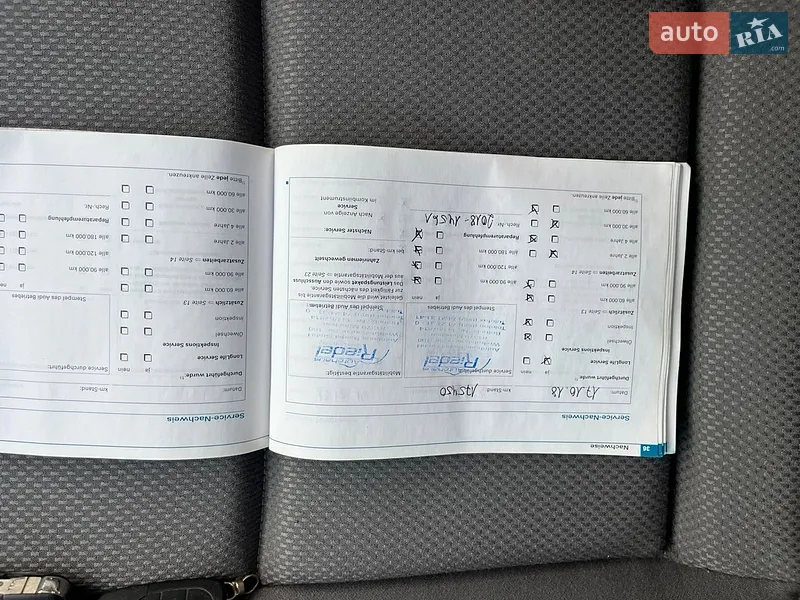 auto RIA.com
36
Nachweise
Service-Nachweis
Datum: 17.10.18
km-Stand: 175450
Durchgeführt wurde:
Service durchgeführt:
Mobilitätsgarantie bestätigt:
ja
nein
LongLife Service
Inspektions Service
Ölwechsel
Inspektion
Zusätzlich ⇨ Seite 13
alle 60.000 km
alle 90.000 km
Zusatzarbeiten ⇨ Seite 14
alle 2 Jahre
alle 4 Jahre
alle 30.000 km
alle 60.000 km
Bitte jede Zeile ankreuzen.
Autohaus
Riedel
Stempel des Audi Betriebes
alle 90.000 km
alle 120.000 km
alle 180.000 km
Reparaturempfehlung
Rech.-Nr.: 2018-14561
Autohaus
Riedel
Stempel des Audi Betriebes
Geleistet wird die Mobilitätsgarantie bis
zur Fälligkeit des nächsten Service.
Das Leistungspaket sowie den Ausschluss
aus der Mobilitätsgarantie ⇨ Seite 23
ja
nein
Zahnriemen gewechselt
bei km-Stand:
Nächster Service:
Nach Anzeige von
Service
im Kombiinstrument
Service-Nachweis
Datum:
km-Stand:
Durchgeführt wurde:
Service durchgeführt:
ja
nein
LongLife Service
Inspektions Service
Ölwechsel
Inspektion
Zusätzlich ⇨ Seite 13
alle 60.000 km
alle 90.000 km
Zusatzarbeiten ⇨ Seite 14
alle 2 Jahre
alle 4 Jahre
alle 30.000 km
alle 60.000 km
Bitte jede Zeile ankreuzen.
Stempel des Audi Betriebes
alle 90.000 km
alle 120.000 km
alle 180.000 km
Reparaturempfehlung
Rech.-Nr.: